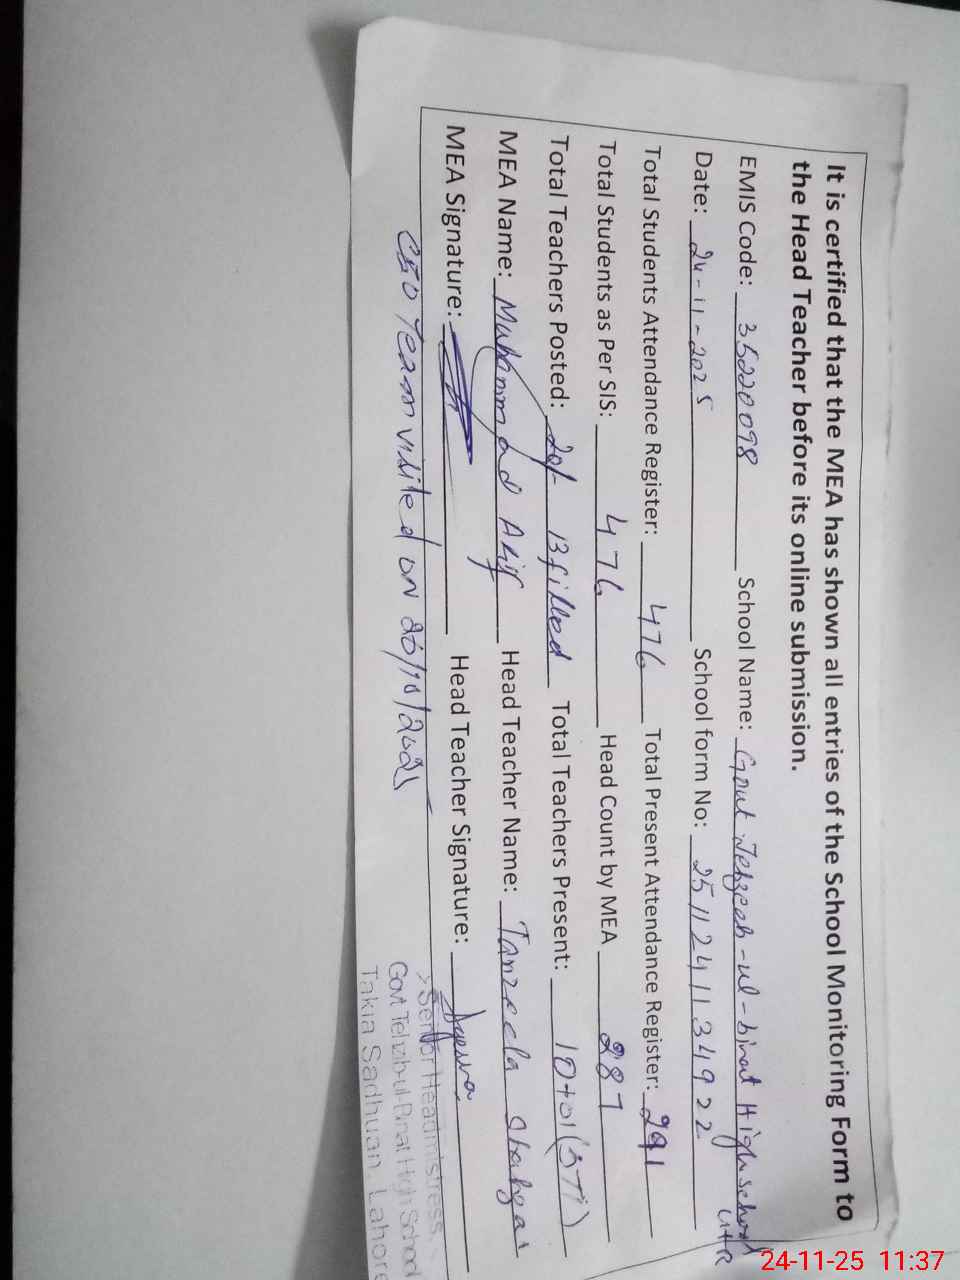 It is certified that the MEA has shown all entries of the School Monitoring Form to
the Head Teacher before its online submission.
EMIS Code: 35220098 School Name: Govt Tehzeeb-ul-binat High school LHR
Date: 24-11-2025 School form No: 2511241134922
Total Students Attendance Register: 476 Total Present Attendance Register: 291
Total Students as Per SIS: 476 Head Count by MEA 287
Total Teachers Posted: 20/ 13 filled Total Teachers Present: 10+01(STI)
MEA Name: Muhammad Arif Head Teacher Name: Tanzeela
MEA Signature: Head Teacher Signature:
CEO Team visited on
Senior Headmistress,
Govt Tehzibul-Binat High School
Takia Sadhuan, Lahore
24-11-25 11:37